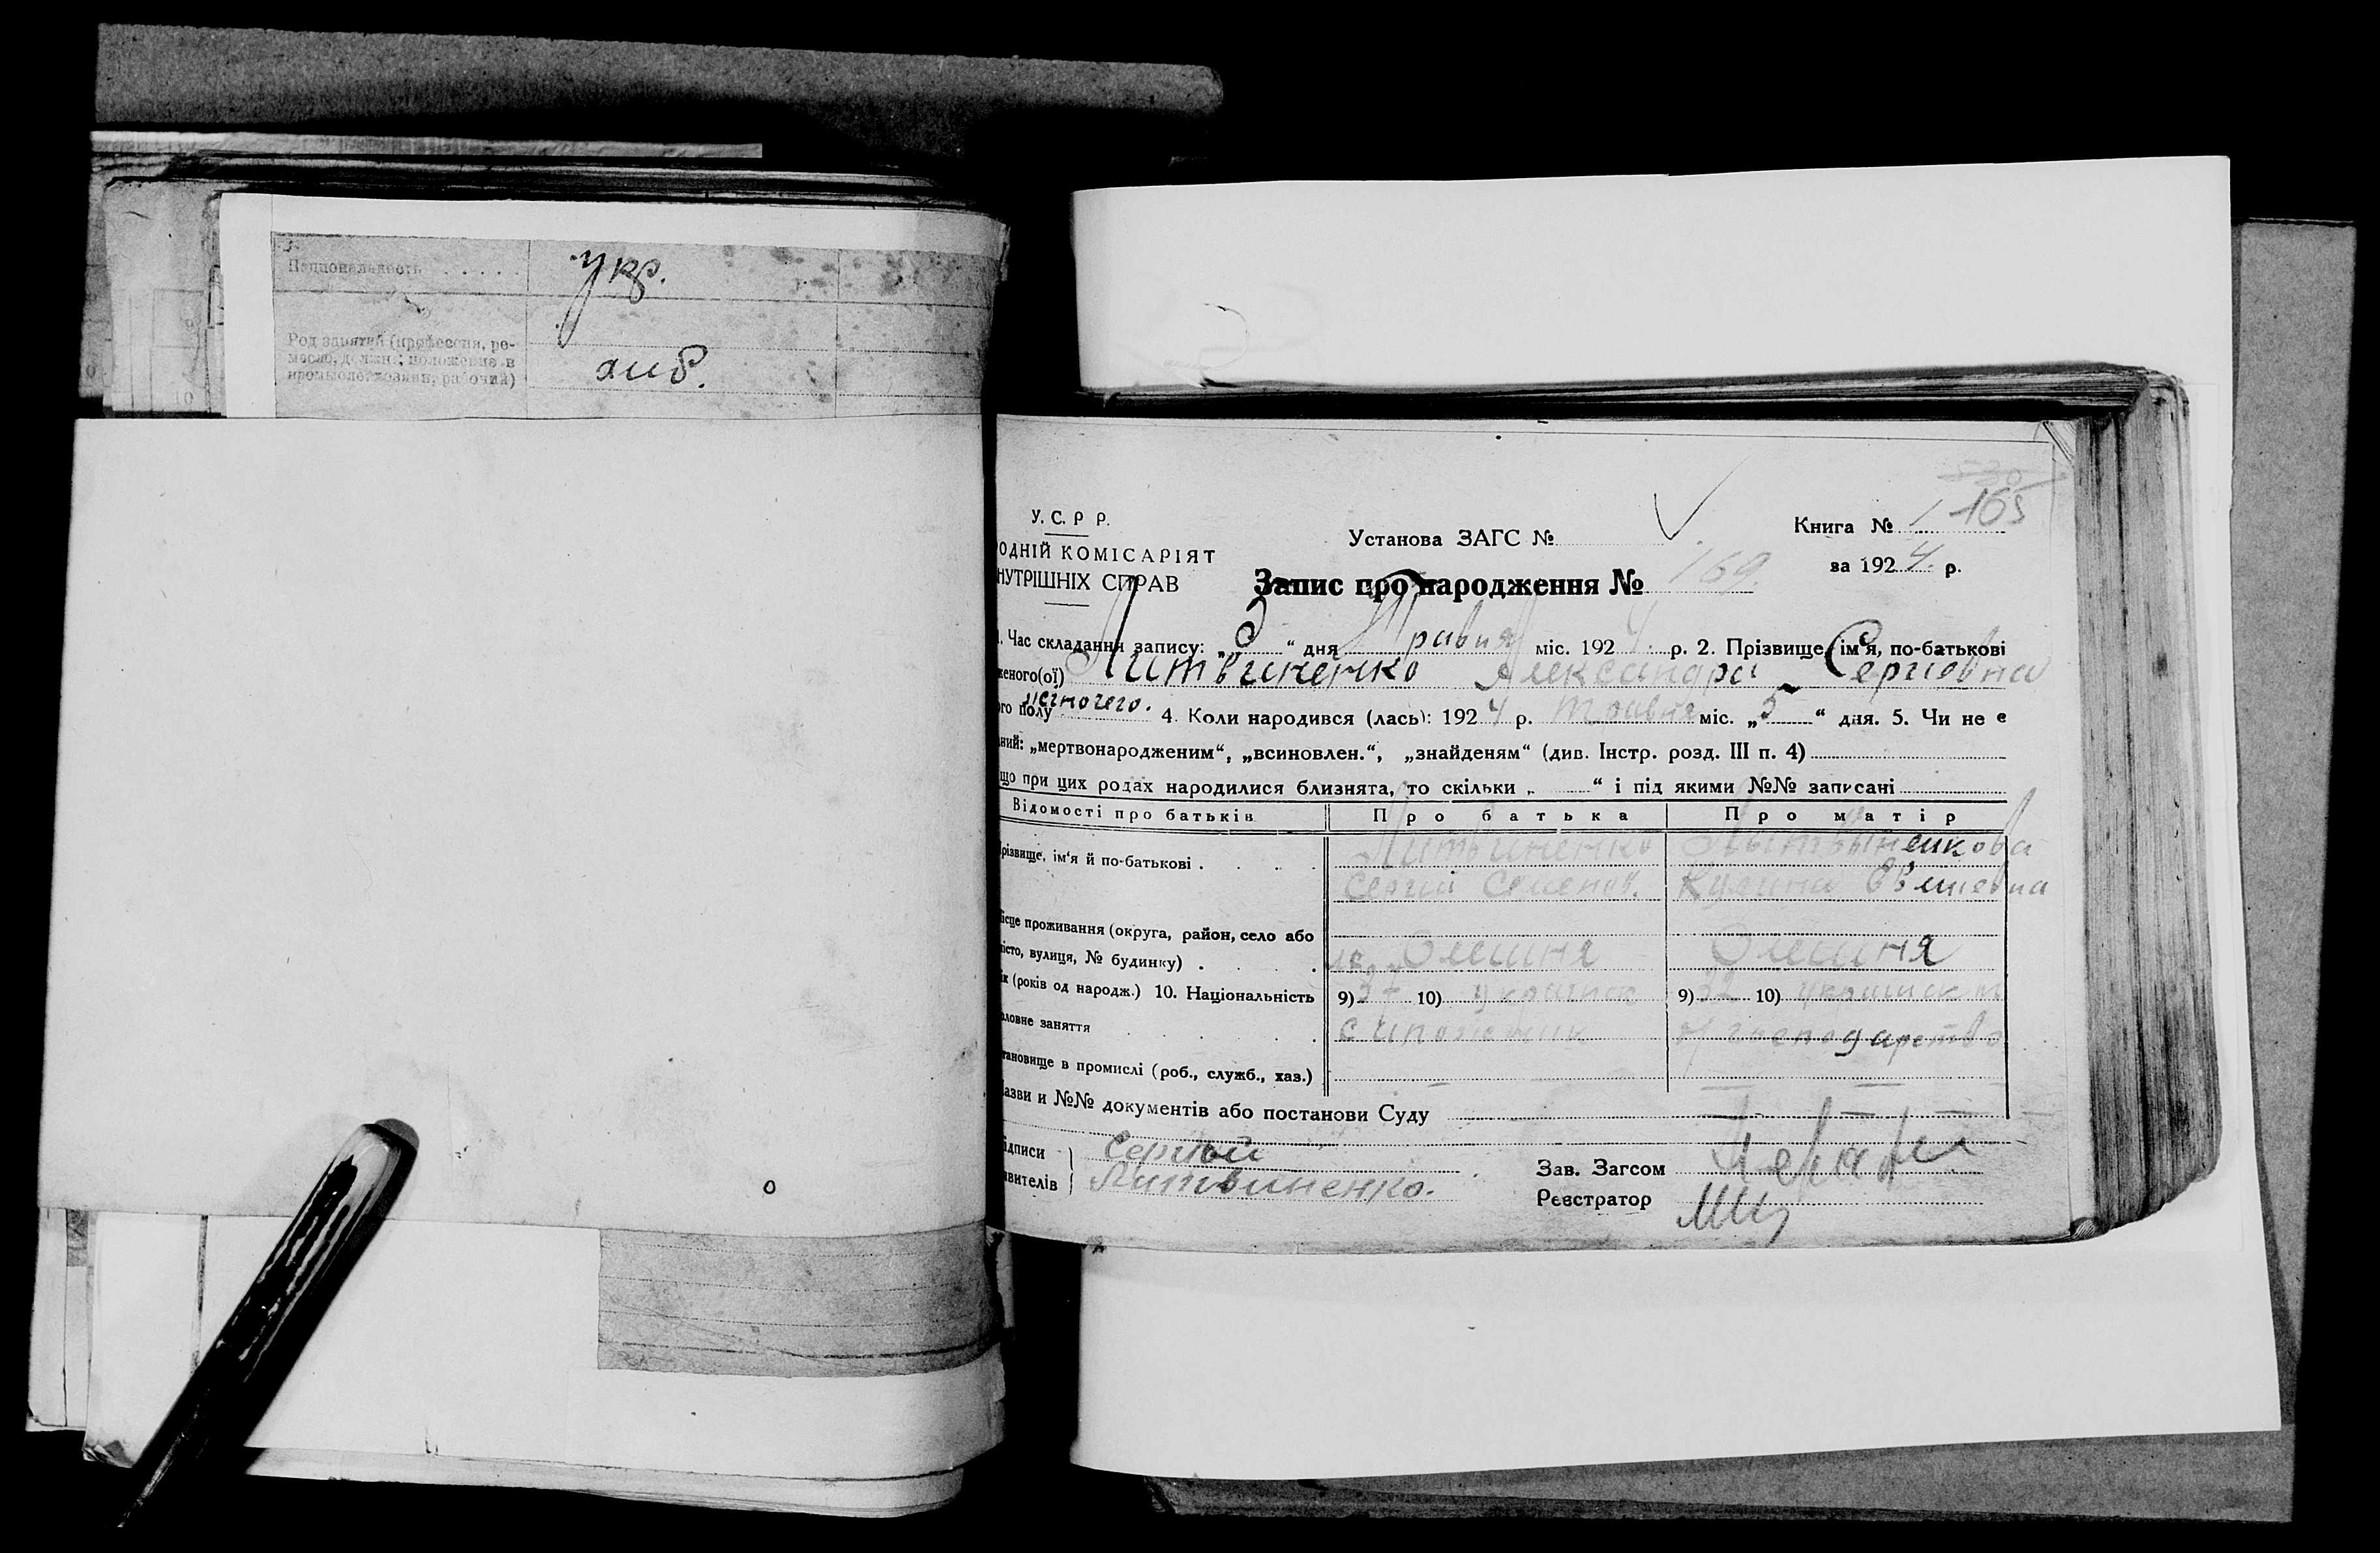 Национальность
укр.
Род занятий (профессия, ре-
месло, должн; положение в
промысле: хозяин, рабочий)
хліб.
530
У. С. Р Р.
Установа ЗАГС №
Книга № 1 165
ОДНІЙ КОМІСАРІЯТ
НУТРІШНІХ СПРАВ
Запис про народження № 169.
за 1924 р.
1. Час складання запису: „ “ дня Травня міс. 1924 р. 2. Прізвище, ім'я, по-батькові
еного(ої) Литвиненко Александра Сергіевна
ого полу жіночего. 4. Коли народився (лась): 1924 р. Травня міс. „5“ дня. 5. Чи не є
аний: „мертвонародженим“, „всиновлен.“, „знайденям“ (див. Інстр. розд. III п. 4)
що при цих родах народилися близнята, то скільки „ “ і під якими №№ записані
Відомості про батьків Про батька Про матір
різвище, ім'я й по-батькові . Литвиненко
Сергій Семенов.
ісце проживання (округа, район, село або
істо, вулиця, № будинку) . Олешня Олешня
ік (років од народж.) 10. Національність 9) 37 10) українец 9) 32 10)
оловне заняття господарство
тановище в промислі (роб., служб., хаз.)
азви и №№ документів або постанови Суду
ідписи Сергій
явителів Литвиненко.
Зав. Загсом
Реєстратор